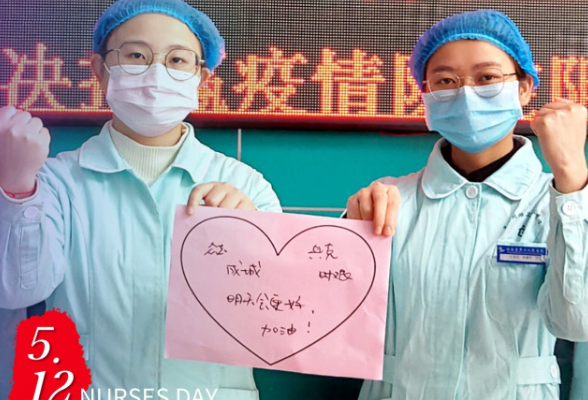 决 赢疫情防
众志 共克
成城 时艰
明天会更好,
加油!
5.
12
NURSES DAY